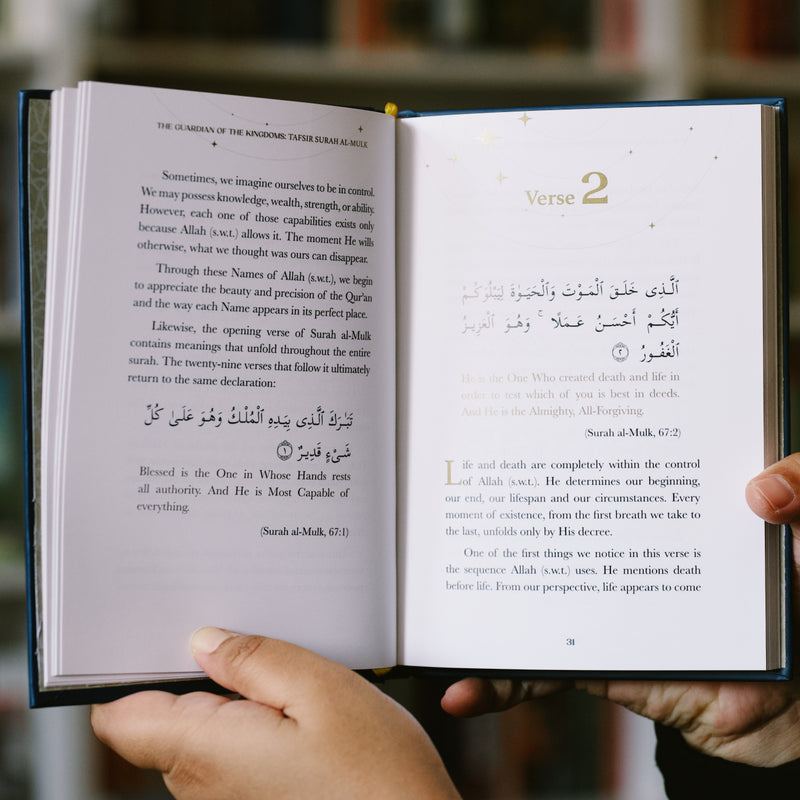 THE GUARDIAN OF THE KINGDOMS: TAFSIR SURAH AL-MULK
Sometimes, we imagine ourselves to be in control.
We may possess knowledge, wealth, strength, or ability.
However, each one of those capabilities exists only
because Allah (s.w.t.) allows it. The moment He wills
otherwise, what we thought was ours can disappear.
Through these Names of Allah (s.w.t.), we begin
to appreciate the beauty and precision of the Qur'an
and the way each Name appears in its perfect place.
Likewise, the opening verse of Surah al-Mulk
contains meanings that unfold throughout the entire
surah. The twenty-nine verses that follow it ultimately
return to the same declaration:
تَبَٰرَكَ ٱلَّذِى بِيَدِهِ ٱلْمُلْكُ وَهُوَ عَلَىٰ كُلِّ
شَىْءٍ قَدِيرٌ ١
Blessed is the One in Whose Hands rests
all authority. And He is Most Capable of
everything.
(Surah al-Mulk, 67:1)
Verse 2
ٱلَّذِى خَلَقَ ٱلْمَوْتَ وَٱلْحَيَوٰةَ لِيَبْلُوَكُمْ
أَيُّكُمْ أَحْسَنُ عَمَلًا ۚ وَهُوَ ٱلْعَزِيزُ
ٱلْغَفُورُ ٢
He is the One Who created death and life in
order to test which of you is best in deeds.
And He is the Almighty, All-Forgiving.
(Surah al-Mulk, 67:2)
Life and death are completely within the control
of Allah (s.w.t.). He determines our beginning,
our end, our lifespan and our circumstances. Every
moment of existence, from the first breath we take to
the last, unfolds only by His decree.
One of the first things we notice in this verse is
the sequence Allah (s.w.t.) uses. He mentions death
before life. From our perspective, life appears to come
31